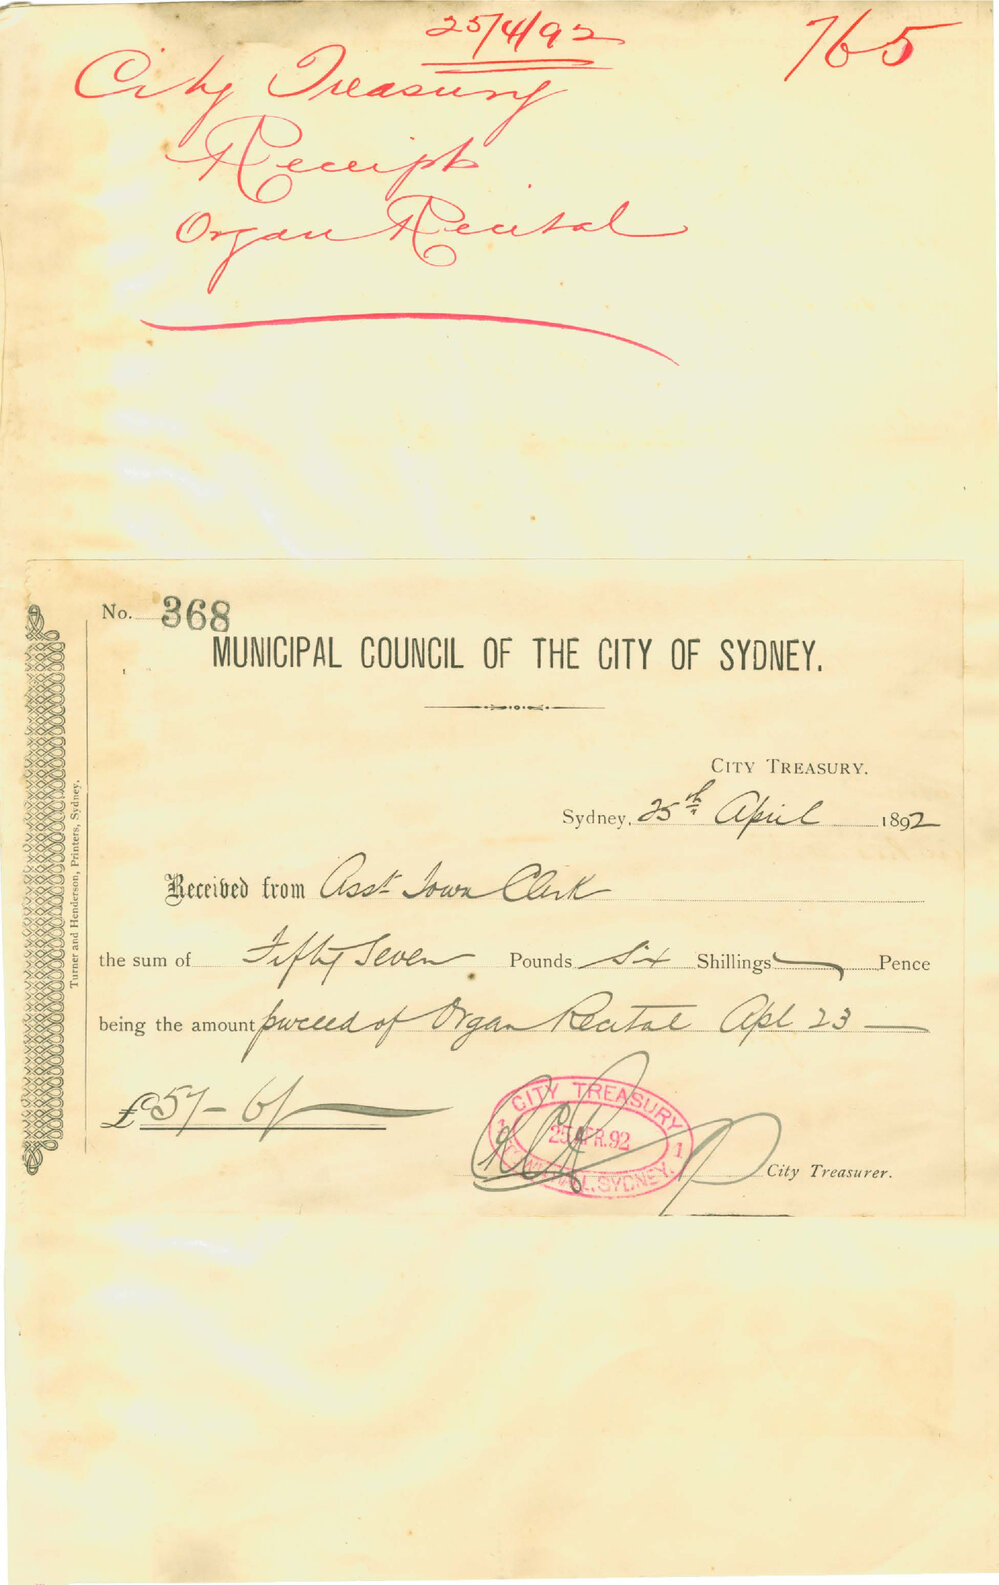 25/4/92
765
City Treasury
Receipt
Organ Recital
No. 368
MUNICIPAL COUNCIL OF THE CITY OF SYDNEY.
CITY TREASURY.
Sydney, 25th April 1892
Received from Asst Town Clerk
the sum of Fifty Seven Pounds Six Shillings Pence
being the amount proceed of Organ Recital Apl 23
£57-6/
CITY TREASURY
25 APR. 92
1 1
TOWN HALL, SYDNEY.
City Treasurer.
Turner and Henderson, Printers, Sydney.